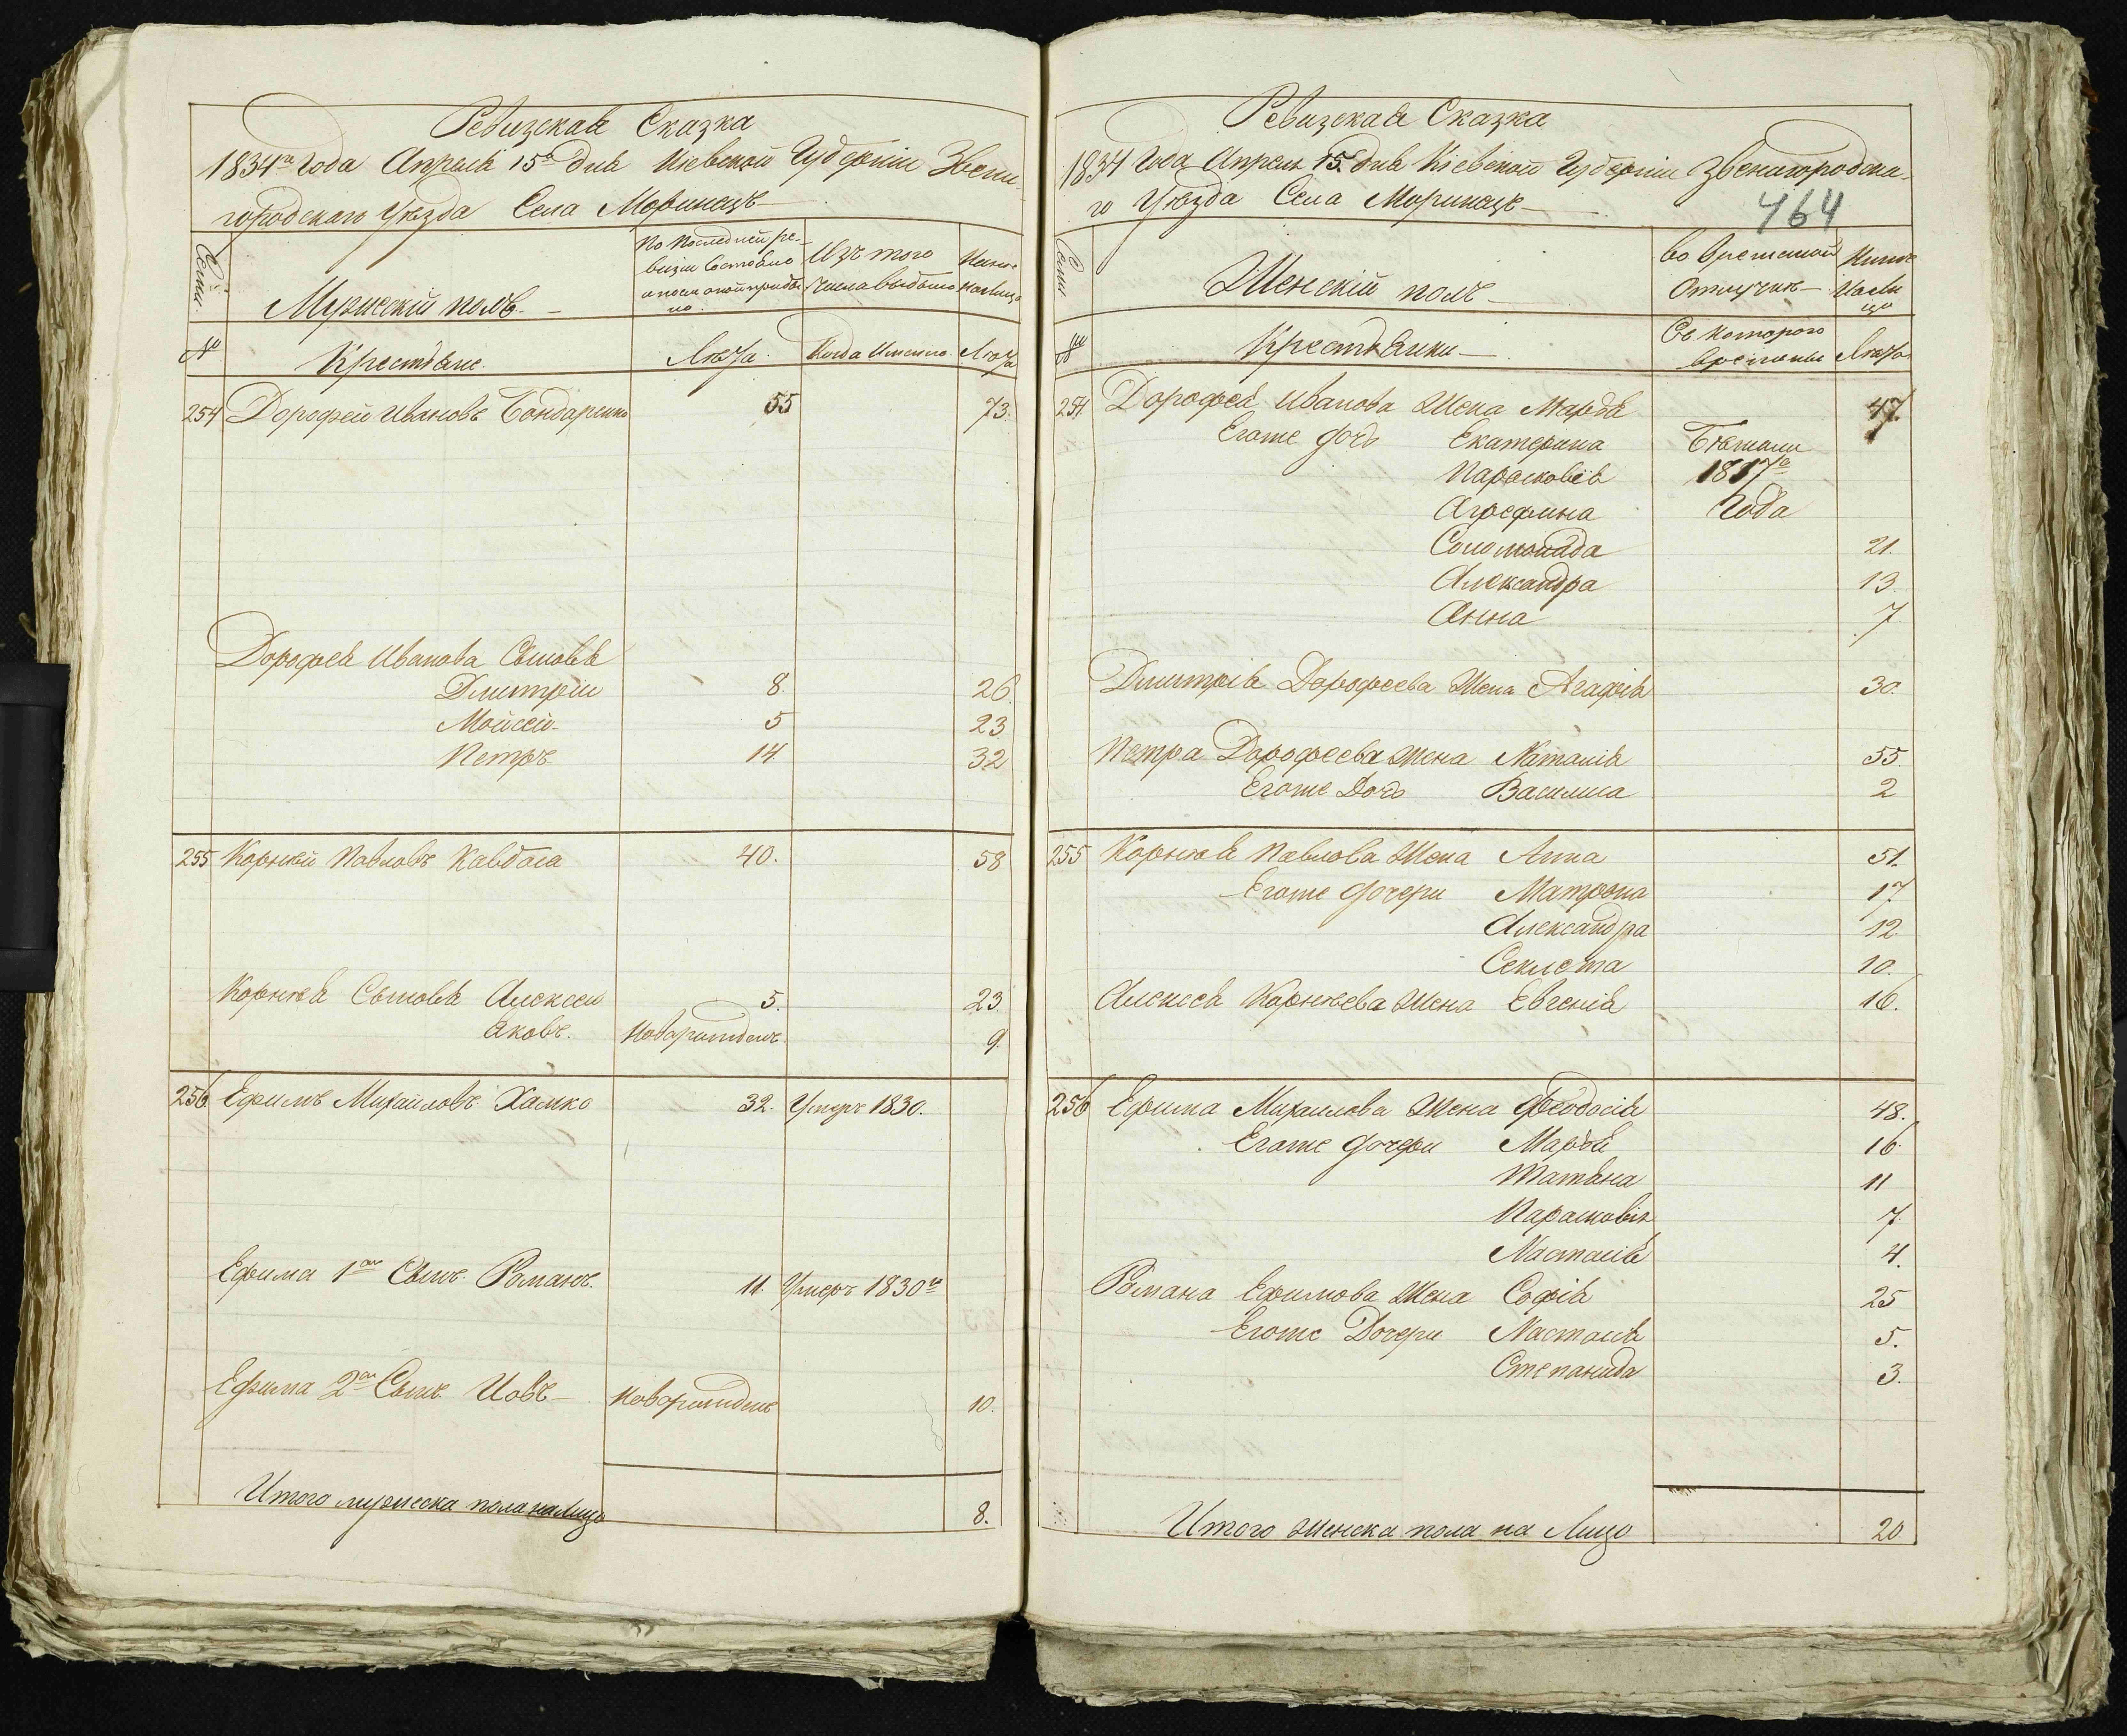 Ревизская Сказка
1834го года Апреля 15го дня Киевской Губернии Звени-
городскаго Уезда Села Моринецъ
Семьи
Мужескій полъ
По последней ре-
визіи состояло
и после оной прибы
ло
Изъ того
числа выбыло
Ныне
на лицо
№
Крестьяне
Лета
Когда именно
Лета
254 Дорофей Ивановъ Бондаренко 55 73.
Дорофея Иванова Сыновья
Дмитрій 8. 26
Мойсей 5 23
Петръ 14 32
255 Корней Павловъ Кавбаса 40. 58
Корнея Сыновья Алексей 5. 23.
Яковъ. Новорожденъ. 9.
256 Ефимъ Михайловъ Хамко 32. Умеръ 1830.
Ефима 1й Сынъ Романъ. 11. Умеръ 1830го
Ефима 2й Сынъ Иовъ Новорожденъ 10.
Итого мужеска пола на лицо 8.
Ревизская Сказка
1834 Года Апреля 15. дня Кіевской Губерніи Звенигородска-
го Уезда Села Моринецъ
464
Семьи
Женскій полъ
во временной
Отлучке
Ныне
на ли
цо
№
Крестьянки
Съ которого
времени
Лета
254. Дорофея Иванова Жена Марья 47.
Егоже дочь Екатерина Бежали
Парасковія 1817го
Агрефина Года
Соломонида 21.
Александра 13.
Анна 7
Дмитрія Дорофеева Жена Агафія 30.
Петра Дорофеева Жена Наталія 55.
Егоже Дочь Василиса 2
255 Корнея Павлова Жена Анна 51.
Егоже дочери Матрона 17
Александра 12.
Секлета 10.
Алексея Корнеева Жена Евгенія 16.
256 Ефима Михаилова Жена Феодосія 48.
Егоже дочери Марья 16.
Татьяна 11
Парасковія 7.
Настасія 4.
Романа Ефимова Жена Софія 25
Егоже Дочери Настасія 5.
Степанида 3.
Итого Женска пола на Лицо 20